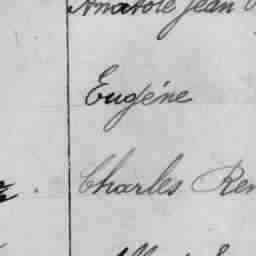 Anatole Jean
Eugéne
Charles Ren